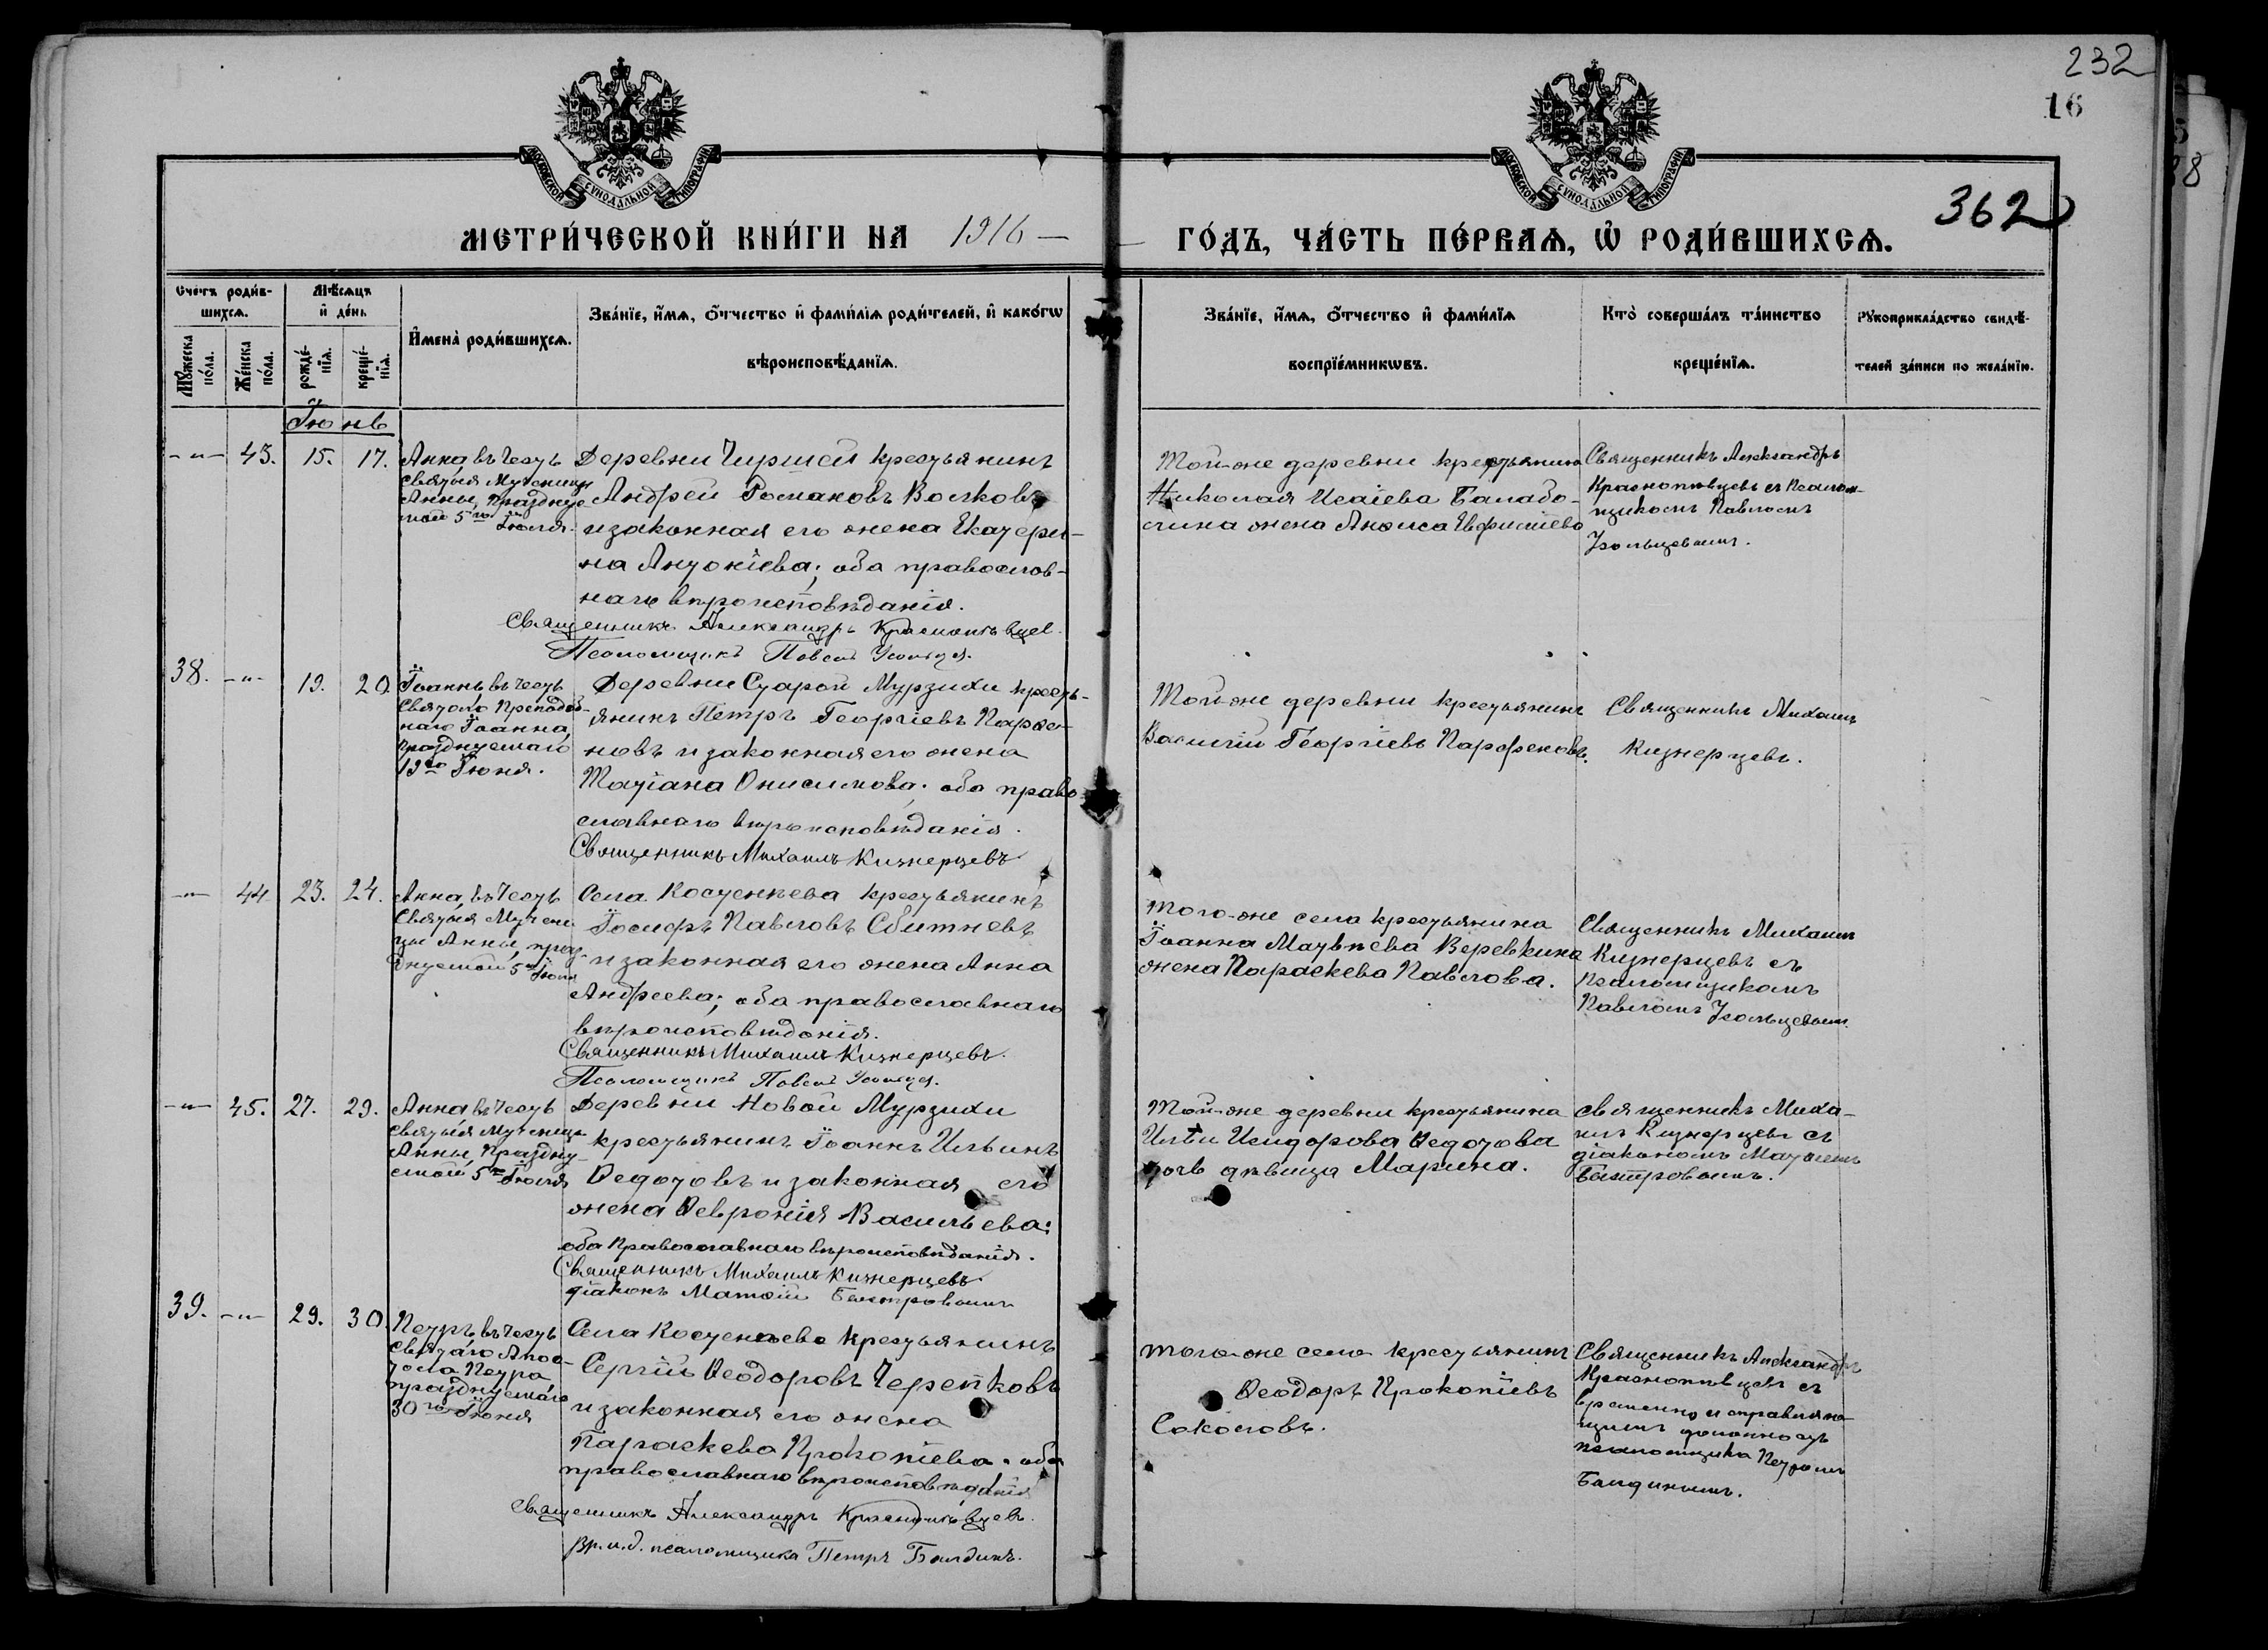 232
16
362
МОСКОВСКОЙ СѴНОДАЛЬНОЙ ТИПОГРАФІИ
МОСКОВСКОЙ СѴНОДАЛЬНОЙ ТИПОГРАФІИ
МЕТРИ́ЧЕСКОЙ КНИ́ГИ НА 1916 —
ГО́ДЪ, ЧА́СТЬ ПЕ́РВАѦ, Ѡ РОДИ́ВШИХСѦ.
Сче́тъ роди́в-
шихсѧ.
Мꙋ́жеска по́ла.
Же́нска по́ла.
Мѣ́сѧцъ
и҆ де́нь
рожде́-
нїѧ.
креще́-
нїѧ.
И҆мена̀ роди́вшихсѧ.
Зва́нїе, и҆́мѧ, ѻ҆́тчество и҆ фами́лїѧ роди́телей, и҆ како́гѡ
вѣроисповѣ́данїѧ.
Зва́нїе, и҆́мѧ, ѻ҆́тчество и҆ фами́лїѧ
воспрїе́мникѡвъ.
Кто̀ соверша́лъ та́инство
креще́нїѧ.
Рꙋкоприкла́дство свидѣ́-
телей за́писи по жела́нїю.
Іюнь
-"- 43. 15. 17.
Анна, въ честь
Святыя Мученицы
Анны, празднуе-
мой 5го Іюля.
Деревни Чиршей крестьянинъ
Андрей Романовъ Волковъ
и законная его жена Екатери-
на Антоніева; оба православ-
наго вѣроисповѣданія.
Священникъ Александръ Краснопѣвцев
Псаломщикъ Павелъ
Той-же деревни крестьянина
Николая Исаіева Балабо-
жена
Священникъ Александръ
Краснопѣвцевъ съ Псалом-
щикомъ Павломъ
38. -"- 19. 20.
Іоаннъ, въ честь
Святаго Преподоб-
наго Іоанна,
празднуемаго
19го Іюня.
Деревни Старой Мурзихи кресть-
янинъ Петръ Георгіевъ Парѳе-
новъ и законная его жена
Татіана Онисимова; оба право-
славнаго вѣроисповѣданія.
Священникъ Михаилъ Кизнерцевъ
Той-же деревни крестьянинъ
Василій Георгіевъ Парфеновъ.
Священникъ Михаилъ
Кизнерцевъ.
-"- 44. 23. 24.
Анна, въ честь
Святыя Мучени-
цы Анны, праз-
днуемой 5го Іюля
Села Костенѣева крестьянинъ
Іосифъ Павловъ Сбитневъ
и законная его жена Анна
Андреева; оба православнаго
вѣроисповѣданія.
Священникъ Михаилъ Кизнерцевъ.
Псаломщикъ Павелъ
Того-же села крестьянина
Іоанна Матвѣева Веревкина
жена Параскева Павлова.
Священникъ Михаилъ
Кизнерцевъ съ
Псаломщикомъ
Павломъ
-"- 45. 27. 29.
Анна въ честь
Святыя Мученицы
Анны, праздну-
емой 5го Іюля
Деревни Новой Мурзихи
крестьянинъ Іоаннъ Ильинъ
Ѳедотовъ и законная его
жена Ѳевронія Васильева:
оба православнаго вѣроисповѣданія.
Священникъ Михаилъ Кизнерцевъ
Діаконъ Матѳій
Той-же деревни крестьянина
Ильи Исидорова Ѳедотова
дочь дѣвица Марина.
Священникъ Миха-
илъ Кизнерцевъ съ
діакономъ Матѳіемъ
39. -"- 29. 30.
Петръ, въ честь
Святаго Апос-
тола Петра
празднуемаго
30го Іюня
Села Костенѣева крестьянинъ
Сергій Ѳеодоровъ Черепковъ
и законная его жена
Параскева Прокопіева: оба
православнаго вѣроисповѣданія
Священникъ Александръ Краснопѣвцевъ.
Вр. и. д. псаломщика Петръ Балдинъ.
Того-же села крестьянинъ
Ѳеодоръ Прокопіевъ
Соколовъ.
Священникъ Александръ
Краснопѣвцевъ съ
временно исправляю-
щимъ должность
псаломщика Петромъ
Балдинымъ.